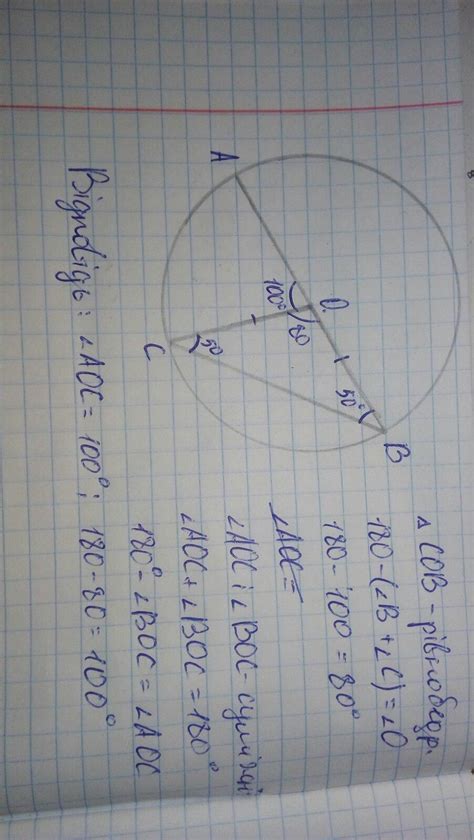 A
O
B
C
100°
80
50°
50
△ COB - рівнобедр.
180-(∠B+∠C)=∠O
180-100=80°
∠AOC=
∠AOC і ∠BOC- суміжні
∠AOC+∠BOC=180°
180°-∠BOC=∠AOC
Відповідь: ∠AOC=100°; 180-80=100°